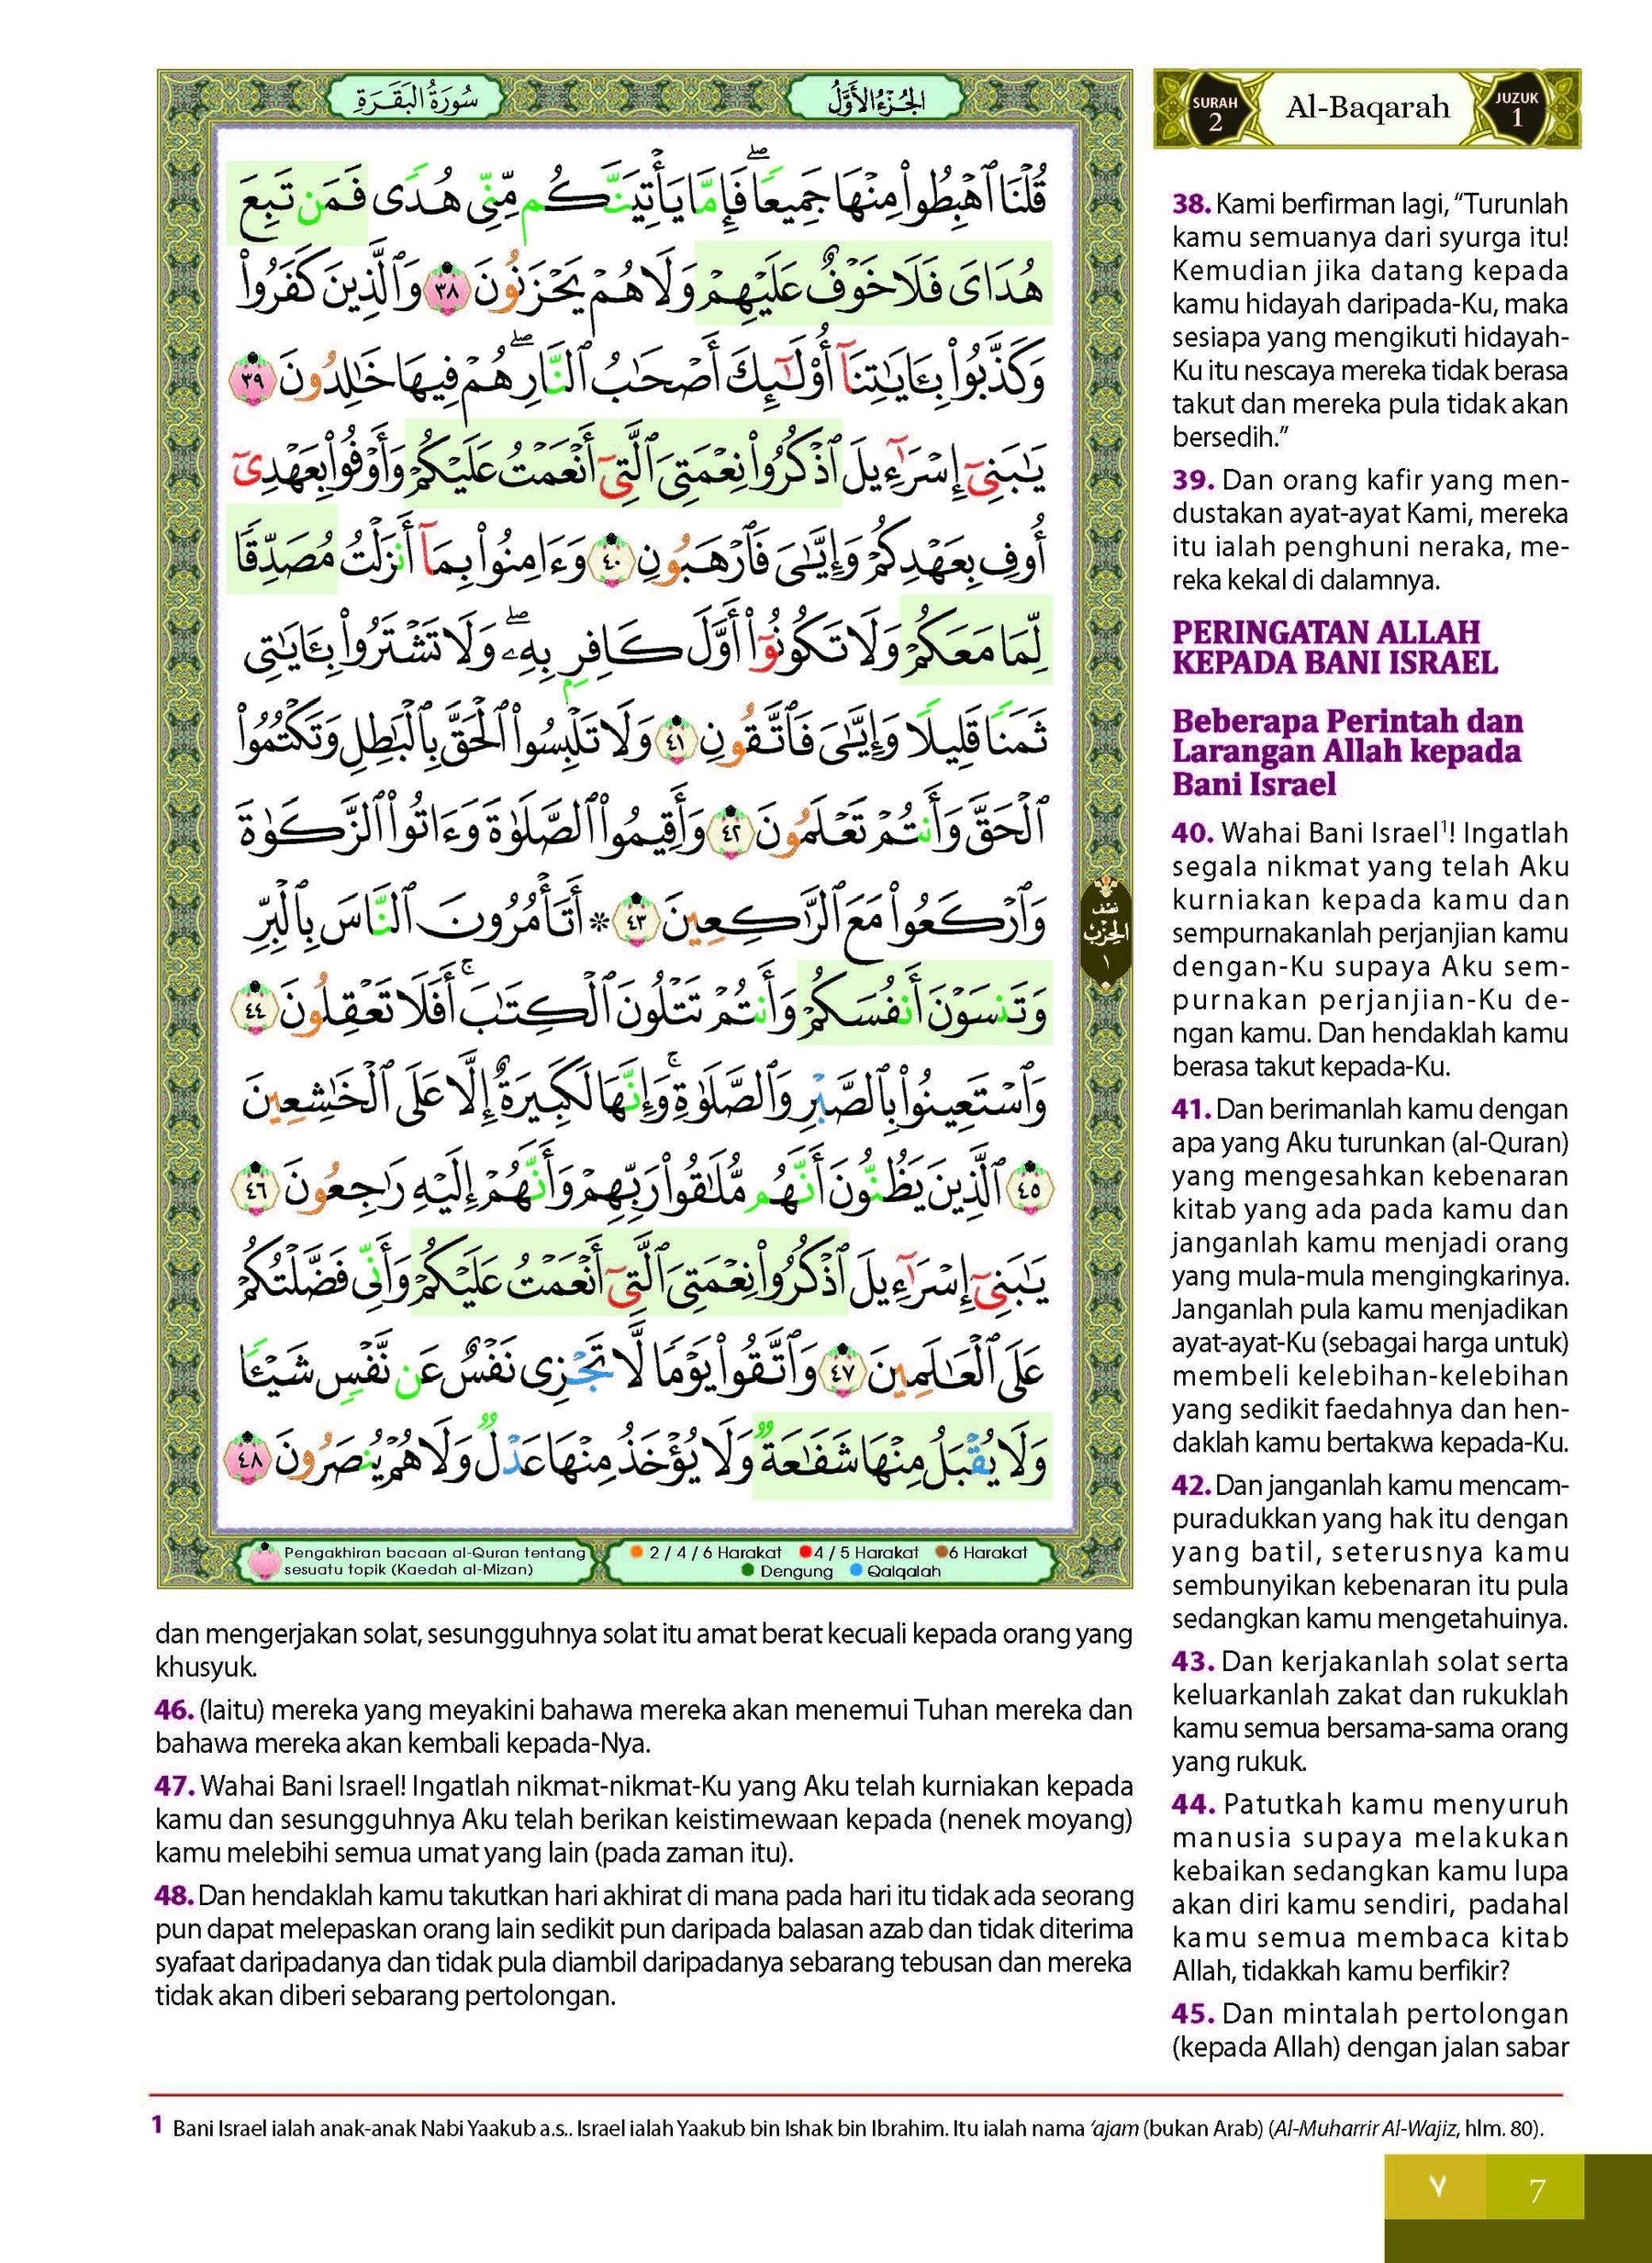 سُورَةُ البَقَرَةِ
الجُزْءُ الأَوَّلُ
SURAH
2
Al-Baqarah
JUZUK
1
قُلْنَا ٱهْبِطُوا۟ مِنْهَا جَمِيعًا ۖ فَإِمَّا يَأْتِيَنَّكُم مِّنِّى هُدًى فَمَن تَبِعَ
هُدَاىَ فَلَا خَوْفٌ عَلَيْهِمْ وَلَا هُمْ يَحْزَنُونَ ٣٨ وَٱلَّذِينَ كَفَرُوا۟
وَكَذَّبُوا۟ بِـَٔايَـٰتِنَآ أُو۟لَـٰٓئِكَ أَصْحَـٰبُ ٱلنَّارِ ۖ هُمْ فِيهَا خَـٰلِدُونَ ٣٩
يَـٰبَنِىٓ إِسْرَٰٓءِيلَ ٱذْكُرُوا۟ نِعْمَتِىَ ٱلَّتِىٓ أَنْعَمْتُ عَلَيْكُمْ وَأَوْفُوا۟ بِعَهْدِىٓ
أُوفِ بِعَهْدِكُمْ وَإِيَّـٰىَ فَٱرْهَبُونِ ٤٠ وَءَامِنُوا۟ بِمَآ أَنزَلْتُ مُصَدِّقًا
لِّمَا مَعَكُمْ وَلَا تَكُونُوٓا۟ أَوَّلَ كَافِرٍۭ بِهِۦ ۖ وَلَا تَشْتَرُوا۟ بِـَٔايَـٰتِى
ثَمَنًا قَلِيلًا وَإِيَّـٰىَ فَٱتَّقُونِ ٤١ وَلَا تَلْبِسُوا۟ ٱلْحَقَّ بِٱلْبَـٰطِلِ وَتَكْتُمُوا۟
ٱلْحَقَّ وَأَنتُمْ تَعْلَمُونَ ٤٢ وَأَقِيمُوا۟ ٱلصَّلَوٰةَ وَءَاتُوا۟ ٱلزَّكَوٰةَ
وَٱرْكَعُوا۟ مَعَ ٱلرَّٰكِعِينَ ٤٣ * أَتَأْمُرُونَ ٱلنَّاسَ بِٱلْبِرِّ
وَتَنسَوْنَ أَنفُسَكُمْ وَأَنتُمْ تَتْلُونَ ٱلْكِتَـٰبَ ۚ أَفَلَا تَعْقِلُونَ ٤٤
وَٱسْتَعِينُوا۟ بِٱلصَّبْرِ وَٱلصَّلَوٰةِ ۚ وَإِنَّهَا لَكَبِيرَةٌ إِلَّا عَلَى ٱلْخَـٰشِعِينَ
٤٥ ٱلَّذِينَ يَظُنُّونَ أَنَّهُم مُّلَـٰقُوا۟ رَبِّهِمْ وَأَنَّهُمْ إِلَيْهِ رَٰجِعُونَ ٤٦
يَـٰبَنِىٓ إِسْرَٰٓءِيلَ ٱذْكُرُوا۟ نِعْمَتِىَ ٱلَّتِىٓ أَنْعَمْتُ عَلَيْكُمْ وَأَنِّى فَضَّلْتُكُمْ
عَلَى ٱلْعَـٰلَمِينَ ٤٧ وَٱتَّقُوا۟ يَوْمًا لَّا تَجْزِى نَفْسٌ عَن نَّفْسٍ شَيْـًٔا
وَلَا يُقْبَلُ مِنْهَا شَفَـٰعَةٌ وَلَا يُؤْخَذُ مِنْهَا عَدْلٌ وَلَا هُمْ يُنصَرُونَ ٤٨
نصف
الحزب
١
Pengakhiran bacaan al-Quran tentang
sesuatu topik (Kaedah al-Mizan)
2 / 4 / 6 Harakat 4 / 5 Harakat 6 Harakat
Dengung Qalqalah
38. Kami berfirman lagi, “Turunlah
kamu semuanya dari syurga itu!
Kemudian jika datang kepada
kamu hidayah daripada-Ku, maka
sesiapa yang mengikuti hidayah-
Ku itu nescaya mereka tidak berasa
takut dan mereka pula tidak akan
bersedih.”
39. Dan orang kafir yang men-
dustakan ayat-ayat Kami, mereka
itu ialah penghuni neraka, me-
reka kekal di dalamnya.
PERINGATAN ALLAH
KEPADA BANI ISRAEL
Beberapa Perintah dan
Larangan Allah kepada
Bani Israel
40. Wahai Bani Israel¹! Ingatlah
segala nikmat yang telah Aku
kurniakan kepada kamu dan
sempurnakanlah perjanjian kamu
dengan-Ku supaya Aku sem-
purnakan perjanjian-Ku de-
ngan kamu. Dan hendaklah kamu
berasa takut kepada-Ku.
41. Dan berimanlah kamu dengan
apa yang Aku turunkan (al-Quran)
yang mengesahkan kebenaran
kitab yang ada pada kamu dan
janganlah kamu menjadi orang
yang mula-mula mengingkarinya.
Janganlah pula kamu menjadikan
ayat-ayat-Ku (sebagai harga untuk)
membeli kelebihan-kelebihan
yang sedikit faedahnya dan hen-
daklah kamu bertakwa kepada-Ku.
42. Dan janganlah kamu mencam-
puradukkan yang hak itu dengan
yang batil, seterusnya kamu
sembunyikan kebenaran itu pula
sedangkan kamu mengetahuinya.
43. Dan kerjakanlah solat serta
keluarkanlah zakat dan rukuklah
kamu semua bersama-sama orang
yang rukuk.
44. Patutkah kamu menyuruh
manusia supaya melakukan
kebaikan sedangkan kamu lupa
akan diri kamu sendiri, padahal
kamu semua membaca kitab
Allah, tidakkah kamu berfikir?
45. Dan mintalah pertolongan
(kepada Allah) dengan jalan sabar
dan mengerjakan solat, sesungguhnya solat itu amat berat kecuali kepada orang yang
khusyuk.
46. (Iaitu) mereka yang meyakini bahawa mereka akan menemui Tuhan mereka dan
bahawa mereka akan kembali kepada-Nya.
47. Wahai Bani Israel! Ingatlah nikmat-nikmat-Ku yang Aku telah kurniakan kepada
kamu dan sesungguhnya Aku telah berikan keistimewaan kepada (nenek moyang)
kamu melebihi semua umat yang lain (pada zaman itu).
48. Dan hendaklah kamu takutkan hari akhirat di mana pada hari itu tidak ada seorang
pun dapat melepaskan orang lain sedikit pun daripada balasan azab dan tidak diterima
syafaat daripadanya dan tidak pula diambil daripadanya sebarang tebusan dan mereka
tidak akan diberi sebarang pertolongan.
1 Bani Israel ialah anak-anak Nabi Yaakub a.s.. Israel ialah Yaakub bin Ishak bin Ibrahim. Itu ialah nama ‘ajam (bukan Arab) (Al-Muharrir Al-Wajiz, hlm. 80).
٧
7